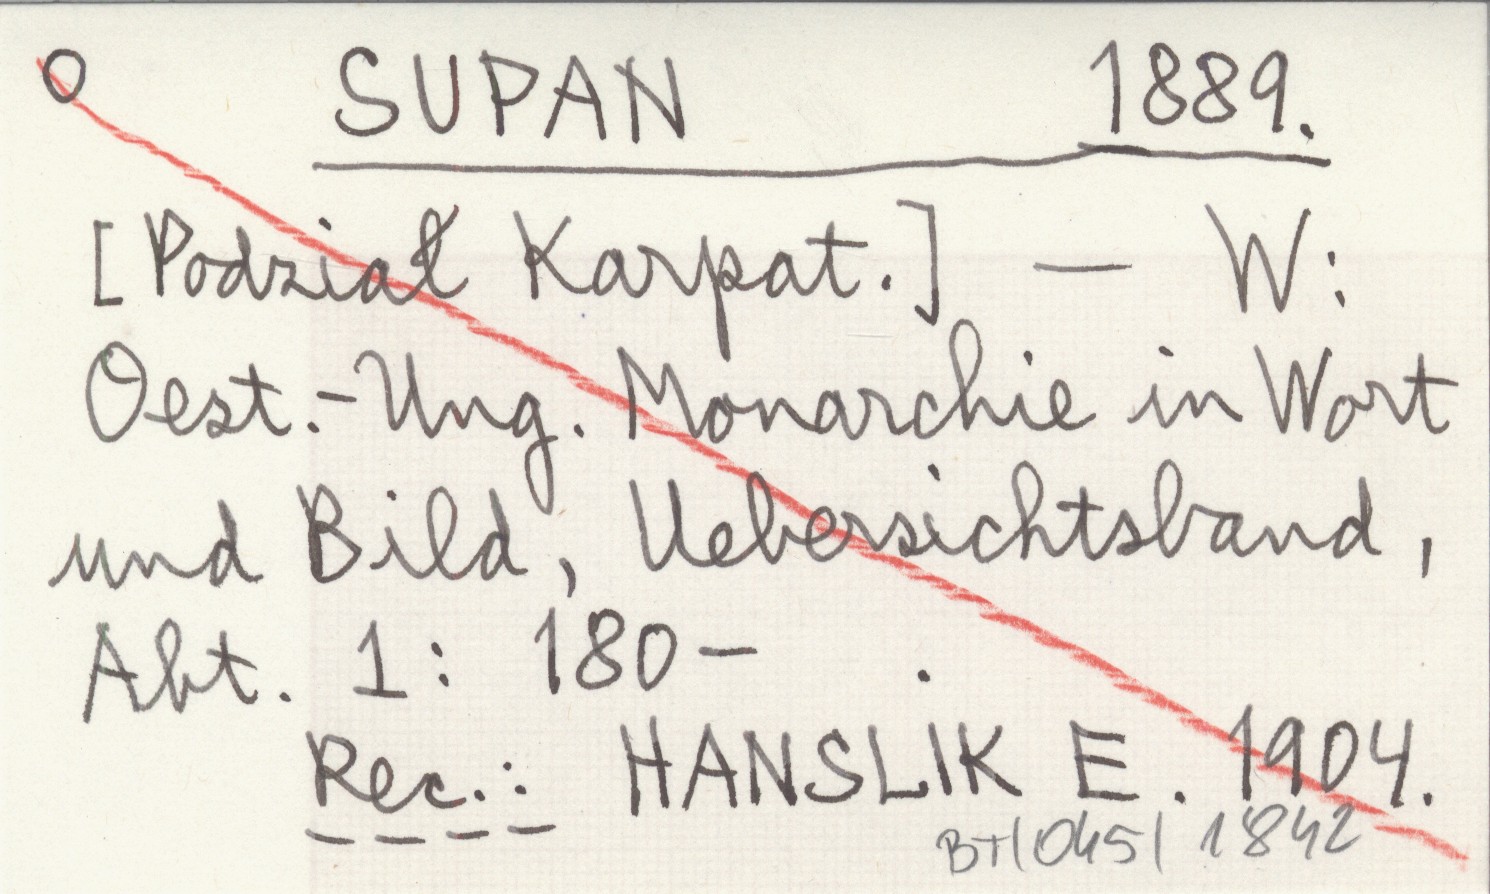 O SUPAN 1889.
[Podział Karpat.] — W:
Oest.-Ung. Monarchie in Wort
und Bild, Uebersichtsband,
Abt. 1: 180– .
Rec.: HANSLIK E. 1904.
BT|045| 1842